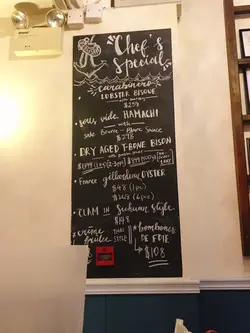 Chef's
Special
carabinero
LOBSTER BISQUE
$258
sous vide HAMACHI
with
sake Beurre - Blanc Sauce
$278
DRY AGED T-BONE BISON
France gillardeau OYSTER
$48 (1pc)
$268 (6pcs)
CLAM IN Sichuan Style
$148
crème brulee THAI STYLE
bombone
DE FOIE
$108